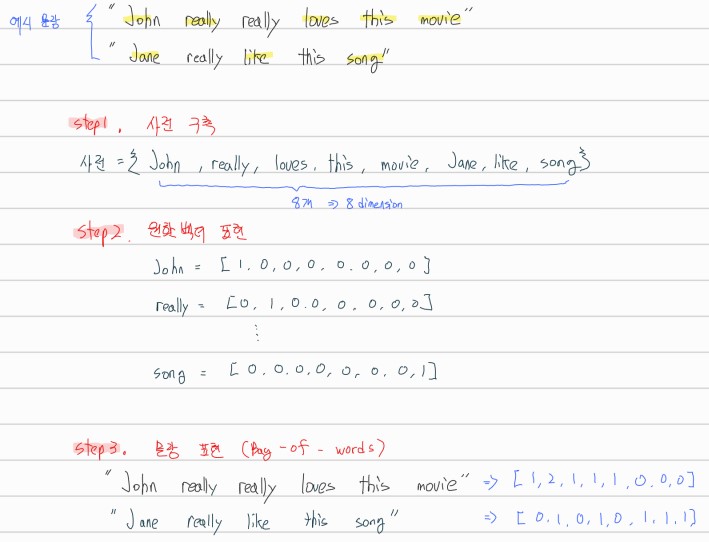 예시 문장 { "John really really loves this movie"
"Jane really like this song"
step1. 사전 구축
사전 = { John, really, loves, this, movie, Jane, like, song }
8개 => 8 dimension
step2. 원핫 벡터 표현
John = [1, 0, 0, 0, 0, 0, 0, 0]
really = [0, 1, 0, 0, 0, 0, 0, 0]
⋮
song = [0, 0, 0, 0, 0, 0, 0, 1]
step3. 문장 표현 (Bag-of-words)
"John really really loves this movie" => [1, 2, 1, 1, 1, 0, 0, 0]
"Jane really like this song" => [0, 1, 0, 1, 0, 1, 1, 1]